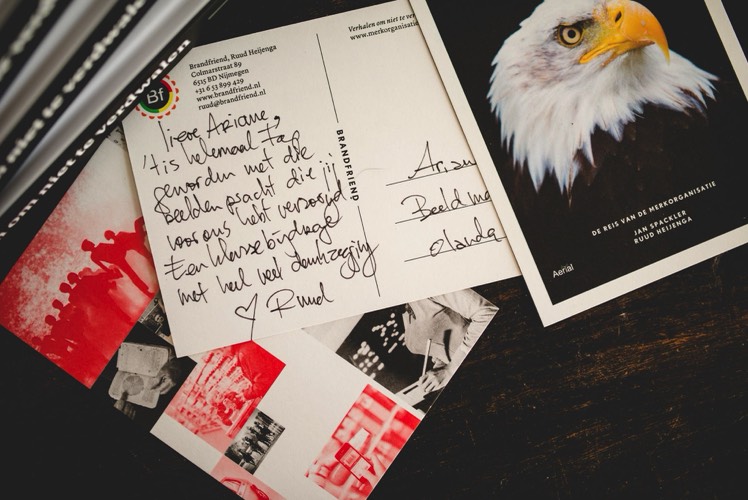 om niet te verdwalen
Verhalen om niet te ver
www.merkorganisatie
Brandfriend, Ruud Heijenga
Colmarstraat 89
6515 BD Nijmegen
+31 6 53 899 429
www.brandfriend.nl
ruud@brandfriend.nl
Bf
lieve Ariane,
't is helemaal
geworden met die
beelden pracht die jij
voor ons hebt verzorgd.
Een klasse bijdrage
met heel veel dankzegging
♡ Ruud
BRANDFRIEND
Arian
Beeld
DE REIS VAN DE MERKORGANISATIE
JAN SPACKLER
RUUD HEIJENGA
Aerial